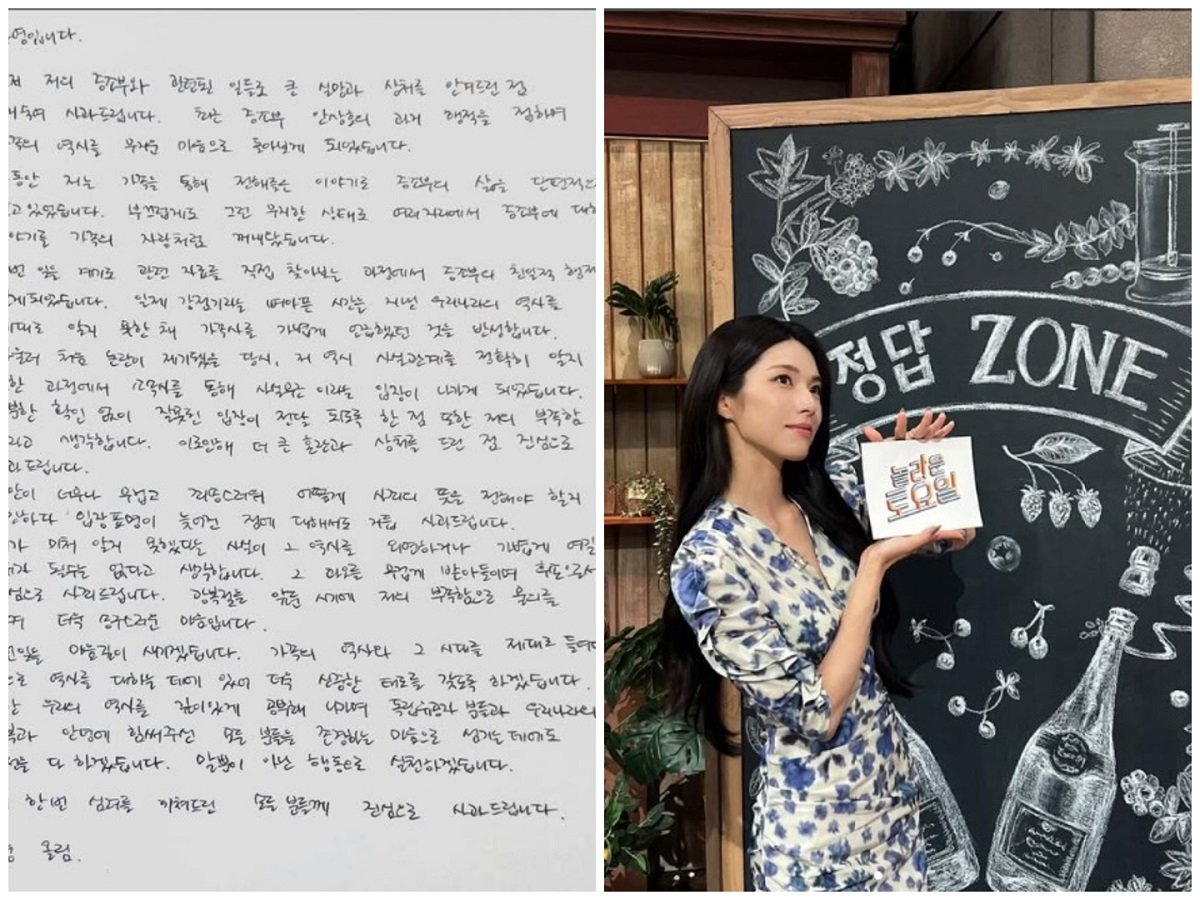 영입니다.
저의 증조부와 관련된 일들로 큰 실망과 상처를 안겨드린 점
숙여 사과드립니다. 최근 증조부 안상호의 과거 행적을 접하며
역사를 무거운 마음으로 돌아보게 되었습니다.
동안 저는 가족을 통해 전해들은 이야기로 증조부의 삶을 단편적으
고 있었습니다. 부끄럽게도 그런 무지한 상태로 여러자리에서 증조부에 대한
야기를 가족의 자랑처럼 꺼내왔습니다.
번 일을 계기로 관련 자료를 직접 찾아보는 과정에서 증조부의 친일적 행적
게 되었습니다. 일제 강점기라는 뼈아픈 시간을 지닌 우리나라의 역사를
대로 알지 못한 채 가족사를 가볍게 언급했던 것을 반성합니다.
울러 처음 논란이 제기됐을 당시, 저 역시 사실관계를 정확히 알지
한 과정에서 소속사를 통해 사실무근 이라는 입장이 나가게 되었습니다.
분한 확인 없이 잘못된 입장이 전달 되도록 한 점 또한 저의 부족함
라고 생각합니다. 이로인해 더 큰 혼란과 상처를 드린 점 진심으로
과드립니다.
너무나 무겁고 죄송스러워 어떻게 사죄의 뜻을 전해야 할지
하다 입장표명이 늦어진 점에 대해서도 거듭 사과드립니다.
가 미처 알지 못했다는 사실이 그 역사를 외면하거나 가볍게 여길
가 될수는 없다고 생각합니다. 그 과오를 무겁게 받아들이며 후손으로서
심으로 사죄드립니다. 광복절을 앞둔 시기에 저의 부족함으로 물의를
더욱 송구스러운 마음입니다.
일을 마음깊이 새기겠습니다. 가족의 역사와 그 시대를 제대로 들여다
으로 역사를 대하는 데에 있어 더욱 신중한 태도를 갖도록 하겠습니다.
한 우리의 역사를 깊이있게 공부해 나가며 독립유공자 분들과 우리나라의
안녕에 힘써주신 모든 분들을 존경하는 마음으로 섬기는데에도
을 다 하겠습니다. 말뿐이 아닌 행동으로 실천하겠습니다.
한번 심려를 끼쳐드린 모든 분들께 진심으로 사과드립니다.
올림.
정답 ZONE
놀라운
토요일